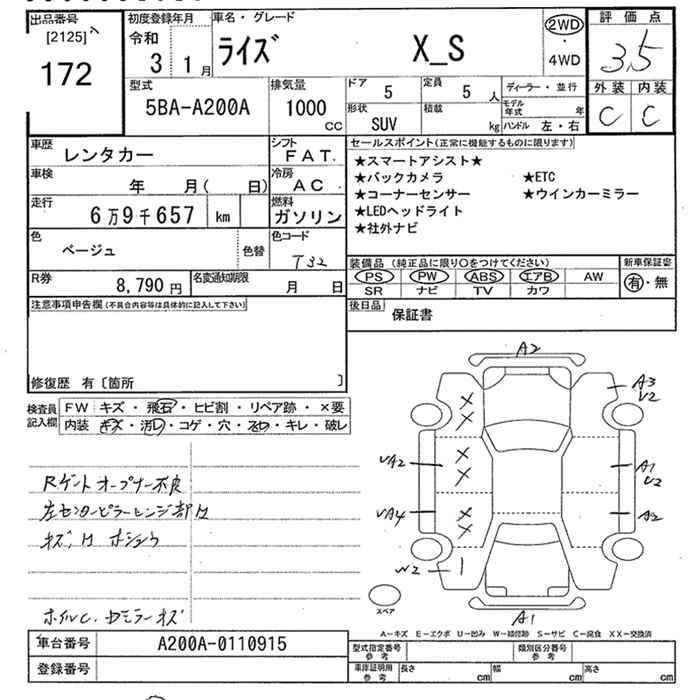 出品番号 初度登録年月 車名・グレード 2WD 評価点
[2125] 令和 ライズ X_S ・ 3.5
172 3 1月 4WD 外装 内装
型式 排気量 ドア 5 定員 5人 ディーラー・並行 C C
5BA-A200A 1000cc 形状 SUV 積載 kg モデル年式 年
ハンドル 左・右
車歴 レンタカー シフト FAT. セールスポイント(正常に機能するものに限ります)
★スマートアシスト★
車検 年 月( 日) 冷房 AC ★バックカメラ ★ETC
★コーナーセンサー ★ウインカーミラー
走行 6万9千657 km 燃料 ガソリン ★LEDヘッドライト
★社外ナビ
色 ベージュ 色替 色コード T32
装備品(純正品に限り○をつけてください) 新車保証書
R券 8,790円 名変通知期限 月 日 PS PW ABS エアB AW 有・無
SR ナビ TV カワ
注意事項申告欄(不具合内容等は具体的に記入して下さい) 後日品 保証書
修復歴 有〔箇所 〕
検査員記入欄 FW キズ・飛石・ヒビ割・リペア跡・×要
内装 キズ・汚レ・コゲ・穴・スレ・キレ・破レ
Rゲートオープナー不良
左センターピラーレンジ部サ
キズ、サ ホショウ
ホイルC. ドミラーキズ
A2
A3
V2
VA2
A1
V2
VA4
A2
W2
A1
スペア
A-キズ E-エクボ U-凹み W-補修跡 S-サビ C-腐食 XX-交換済
車台番号 A200A-0110915 型式指定番号 参考 類別区分番号 参考
登録番号 車庫証明用 参考 長さ cm 幅 cm 高さ cm